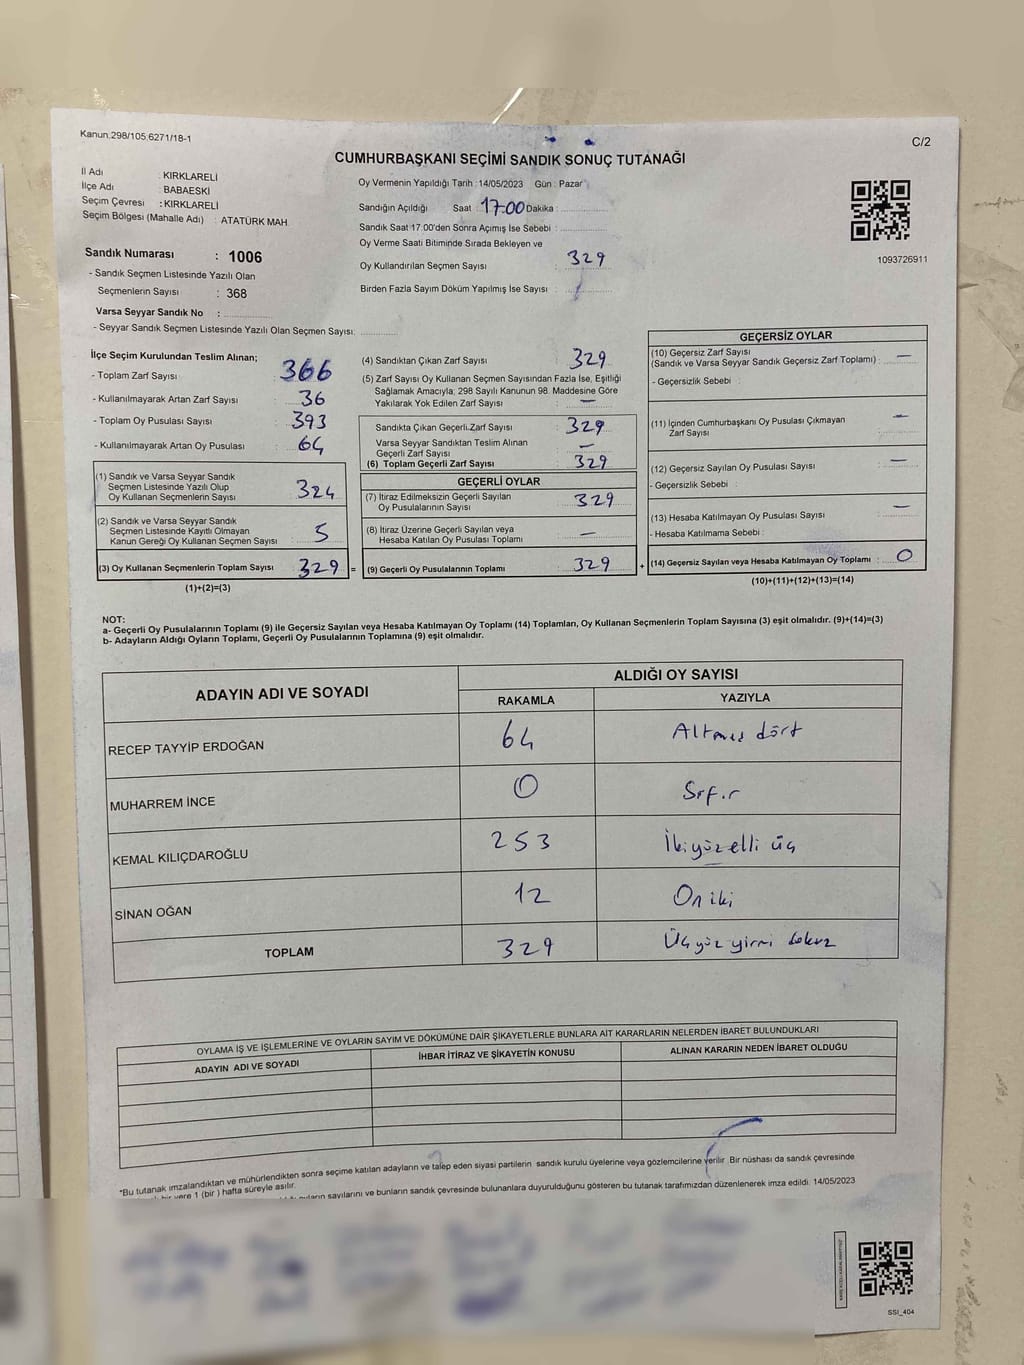 Kanun:298/105,6271/18-1
C/2
CUMHURBAŞKANI SEÇİMİ SANDIK SONUÇ TUTANAĞI
İl Adı : KIRKLARELİ
İlçe Adı : BABAESKİ
Seçim Çevresi : KIRKLARELİ
Seçim Bölgesi (Mahalle Adı) : ATATÜRK MAH.
Sandık Numarası : 1006
- Sandık Seçmen Listesinde Yazılı Olan
Seçmenlerin Sayısı : 368
Varsa Seyyar Sandık No :
- Seyyar Sandık Seçmen Listesinde Yazılı Olan Seçmen Sayısı:
Oy Vermenin Yapıldığı Tarih : 14/05/2023 Gün : Pazar
Sandığın Açıldığı Saat : 17:00 Dakika :
Sandık Saat 17.00'den Sonra Açımış İse Sebebi :
Oy Verme Saati Bitiminde Sırada Bekleyen ve
Oy Kullandırılan Seçmen Sayısı : 329
Birden Fazla Sayım Döküm Yapılmış İse Sayısı :
1093726911
İlçe Seçim Kurulundan Teslim Alınan;
- Toplam Zarf Sayısı : 366
- Kullanılmayarak Artan Zarf Sayısı : 36
- Toplam Oy Pusulası Sayısı : 393
- Kullanılmayarak Artan Oy Pusulası : 64
(1) Sandık ve Varsa Seyyar Sandık
Seçmen Listesinde Yazılı Olup
Oy Kullanan Seçmenlerin Sayısı : 324
(2) Sandık ve Varsa Seyyar Sandık
Seçmen Listesinde Kayıtlı Olmayan
Kanun Gereği Oy Kullanan Seçmen Sayısı : 5
(3) Oy Kullanan Seçmenlerin Toplam Sayısı : 329
(1)+(2)=(3)
(4) Sandıktan Çıkan Zarf Sayısı : 329
(5) Zarf Sayısı Oy Kullanan Seçmen Sayısından Fazla İse, Eşitliği
Sağlamak Amacıyla, 298 Sayılı Kanunun 98. Maddesine Göre
Yakılarak Yok Edilen Zarf Sayısı : —
Sandıkta Çıkan Geçerli Zarf Sayısı : 329
Varsa Seyyar Sandıktan Teslim Alınan
Geçerli Zarf Sayısı : —
(6) Toplam Geçerli Zarf Sayısı : 329
GEÇERLİ OYLAR
(7) İtiraz Edilmeksizin Geçerli Sayılan
Oy Pusulalarının Sayısı : 329
(8) İtiraz Üzerine Geçerli Sayılan veya
Hesaba Katılan Oy Pusulası Toplamı : —
= (9) Geçerli Oy Pusulalarının Toplamı : 329
GEÇERSİZ OYLAR
(10) Geçersiz Zarf Sayısı
(Sandık ve Varsa Seyyar Sandık Geçersiz Zarf Toplamı) : —
- Geçersizlik Sebebi :
(11) İçinden Cumhurbaşkanı Oy Pusulası Çıkmayan
Zarf Sayısı : —
(12) Geçersiz Sayılan Oy Pusulası Sayısı : —
- Geçersizlik Sebebi :
(13) Hesaba Katılmayan Oy Pusulası Sayısı : —
- Hesaba Katılmama Sebebi :
+ (14) Geçersiz Sayılan veya Hesaba Katılmayan Oy Toplamı : 0
(10)+(11)+(12)+(13)=(14)
NOT:
a- Geçerli Oy Pusulalarının Toplamı (9) ile Geçersiz Sayılan veya Hesaba Katılmayan Oy Toplamı (14) Toplamları, Oy Kullanan Seçmenlerin Toplam Sayısına (3) eşit olmalıdır. (9)+(14)=(3)
b- Adayların Aldığı Oyların Toplamı, Geçerli Oy Pusulalarının Toplamına (9) eşit olmalıdır.
ADAYIN ADI VE SOYADI
ALDIĞI OY SAYISI
RAKAMLA YAZIYLA
RECEP TAYYİP ERDOĞAN 64 Altmış dört
MUHARREM İNCE 0 Sıfır
KEMAL KILIÇDAROĞLU 253 İkiyüzelli üç
SİNAN OĞAN 12 On iki
TOPLAM 329 Üçyüz yirmi dokuz
OYLAMA İŞ VE İŞLEMLERİNE VE OYLARIN SAYIM VE DÖKÜMÜNE DAİR ŞİKAYETLERLE BUNLARA AİT KARARLARIN NELERDEN İBARET BULUNDUKLARI
ADAYIN ADI VE SOYADI İHBAR İTİRAZ VE ŞİKAYETİN KONUSU ALINAN KARARIN NEDEN İBARET OLDUĞU
*Bu tutanak imzalandıktan ve mühürlendikten sonra seçime katılan adayların ve talep eden siyasi partilerin sandık kurulu üyelerine veya gözlemcilerine verilir. Bir nüshası da sandık çevresinde
bir yere 1 (bir) hafta süreyle asılır.
sayılarını ve bunların sandık çevresinde bulunanlara duyurulduğunu gösteren bu tutanak tarafımızdan düzenlenerek imza edildi. 14/05/2023
SSI_404